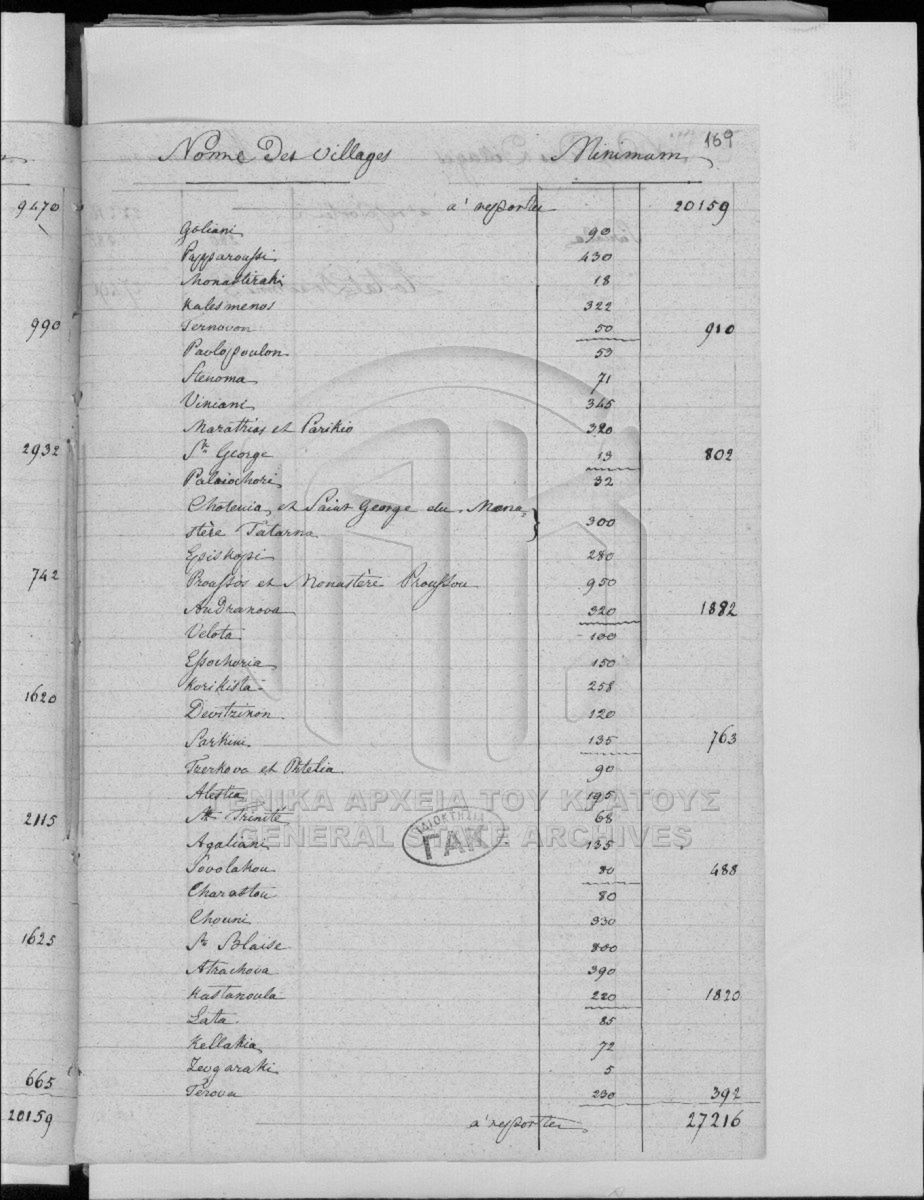 169
Nome Des Villages Minimum
9470 a' reporter 20159
Goliani 90
Papparoussi 430
Monastiraki 18
Kalesmenos 322
990 Ternovon 50 910
Pavlopoulon 53
Stenoma 71
Viniani 345
Marathias et Parikio 320
2932 St. George 13 802
Palaiochori 32
Chotenia et Saint George du Mona=
stère Tatarna } 300
Episkopi 280
742 Proussos et Monastère Proussou 950
Andranova 320 1882
Velota 100
Essochoria 150
1620 Korikista 258
Devitzinon 120
Sarkini 135 763
Tzerkova et Phtelia 90
Alestia 195
2115 Ste Trinité 68
Agaliani 135
Sovolakou 80 488
Charastou 80
Chouni 330
1625 St Blaise 800
Atrachova 390
Kastanoula 220 1820
Lata 85
Kellakia 72
Zevgaraki 5
665 Terova 230 392
20159 a' reporter 27216
ΓΕΝΙΚΑ ΑΡΧΕΙΑ ΤΟΥ ΚΡΑΤΟΥΣ
GENERAL STATE ARCHIVES
ΙΔΙΟΚΤΗΣΙΑ
ΓΑΚ